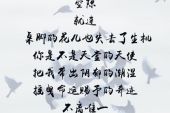 空隙
就连
桌脚的花儿也失去了生机
你是不是天堂的天使
把我带出阴郁的潮湿
接受命运赐予的奔逃
不离唯一